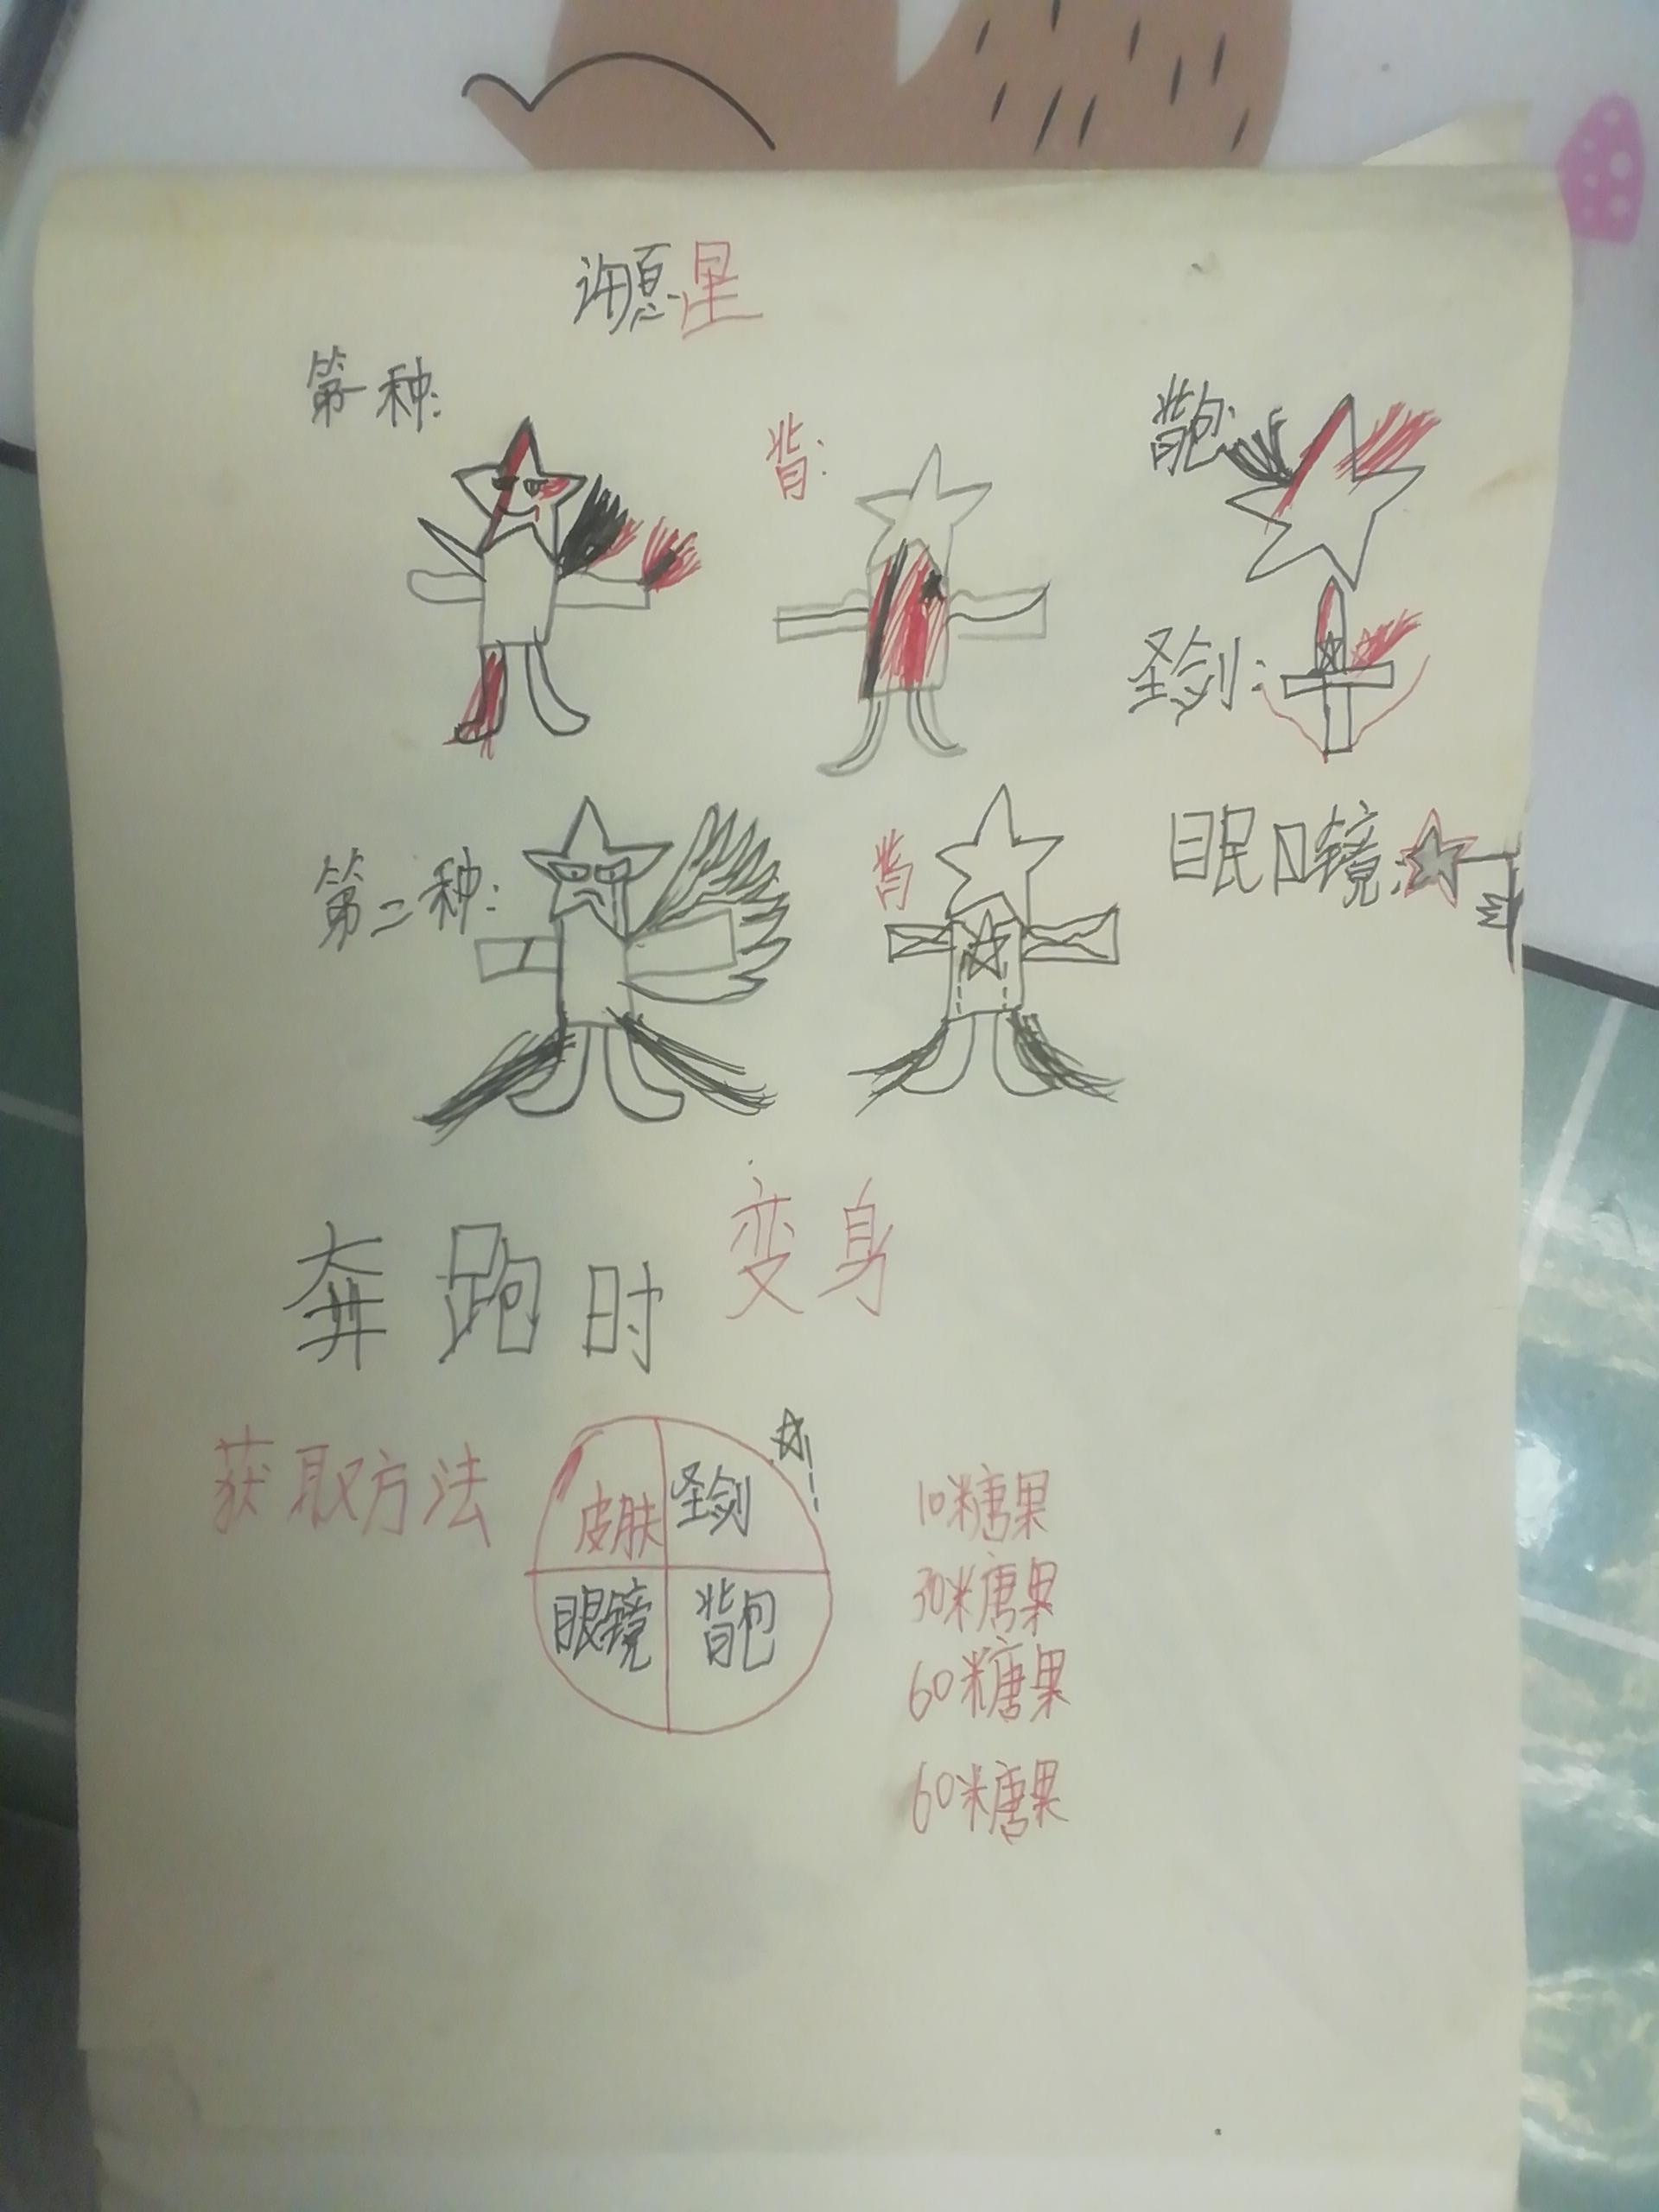 许愿星
第一种:
背:
背包:
圣剑:
第二种:
背
眼镜:
奔跑时 变身
获取方法
皮肤 圣剑
眼镜 背包
10糖果
30糖果
60糖果
60糖果